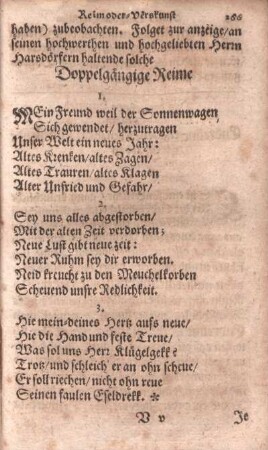 Reimoder-Vërskunst 266
haben) zubeobachten. Folget zur anzeige/an
seinen hochwerthen und hochgeliebten Herrn
Harsdörfern haltende solche
Doppelgängige Reime
1.
MEin Freund weil der Sonnenwagen,
Sich gewendet/ herzutragen
Unser Welt ein neues Jahr:
Altes Krenken/altes Zagen/
Altes Trauren/altes Klagen
Alter Unfried und Gefahr/
2.
Sey uns alles abgestorben/
Mit der alten Zeit verdorben;
Neue Lust gibt neue zeit:
Neuer Ruhm sey dir erworben.
Neid kreucht zu den Meuchelkorben
Scheuend unsre Redlichkeit.
3.
Hie mein-deines Hertz aufs neue/
Hie die Hand und feste Treue/
Was sol uns Herr Klügelgekk?
Trotz/und schleich' er an ohn scheue/
Er soll riechen/nicht ohn reue
Seinen faulen Eseldrekk. *
V v Je